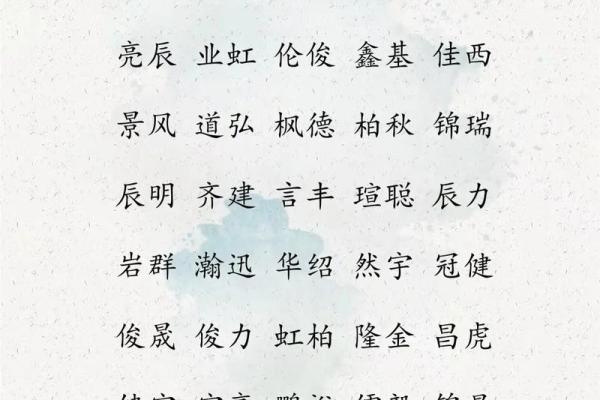 亮辰 业虹 伦俊 鑫基 佳西
景风 道弘 枫德 柏秋 锦瑞
辰明 齐建 言丰 瑄聪 辰力
岩群 瀚迅 华绍 然宇 冠健
俊晟 俊力 虹柏 隆金 昌虎